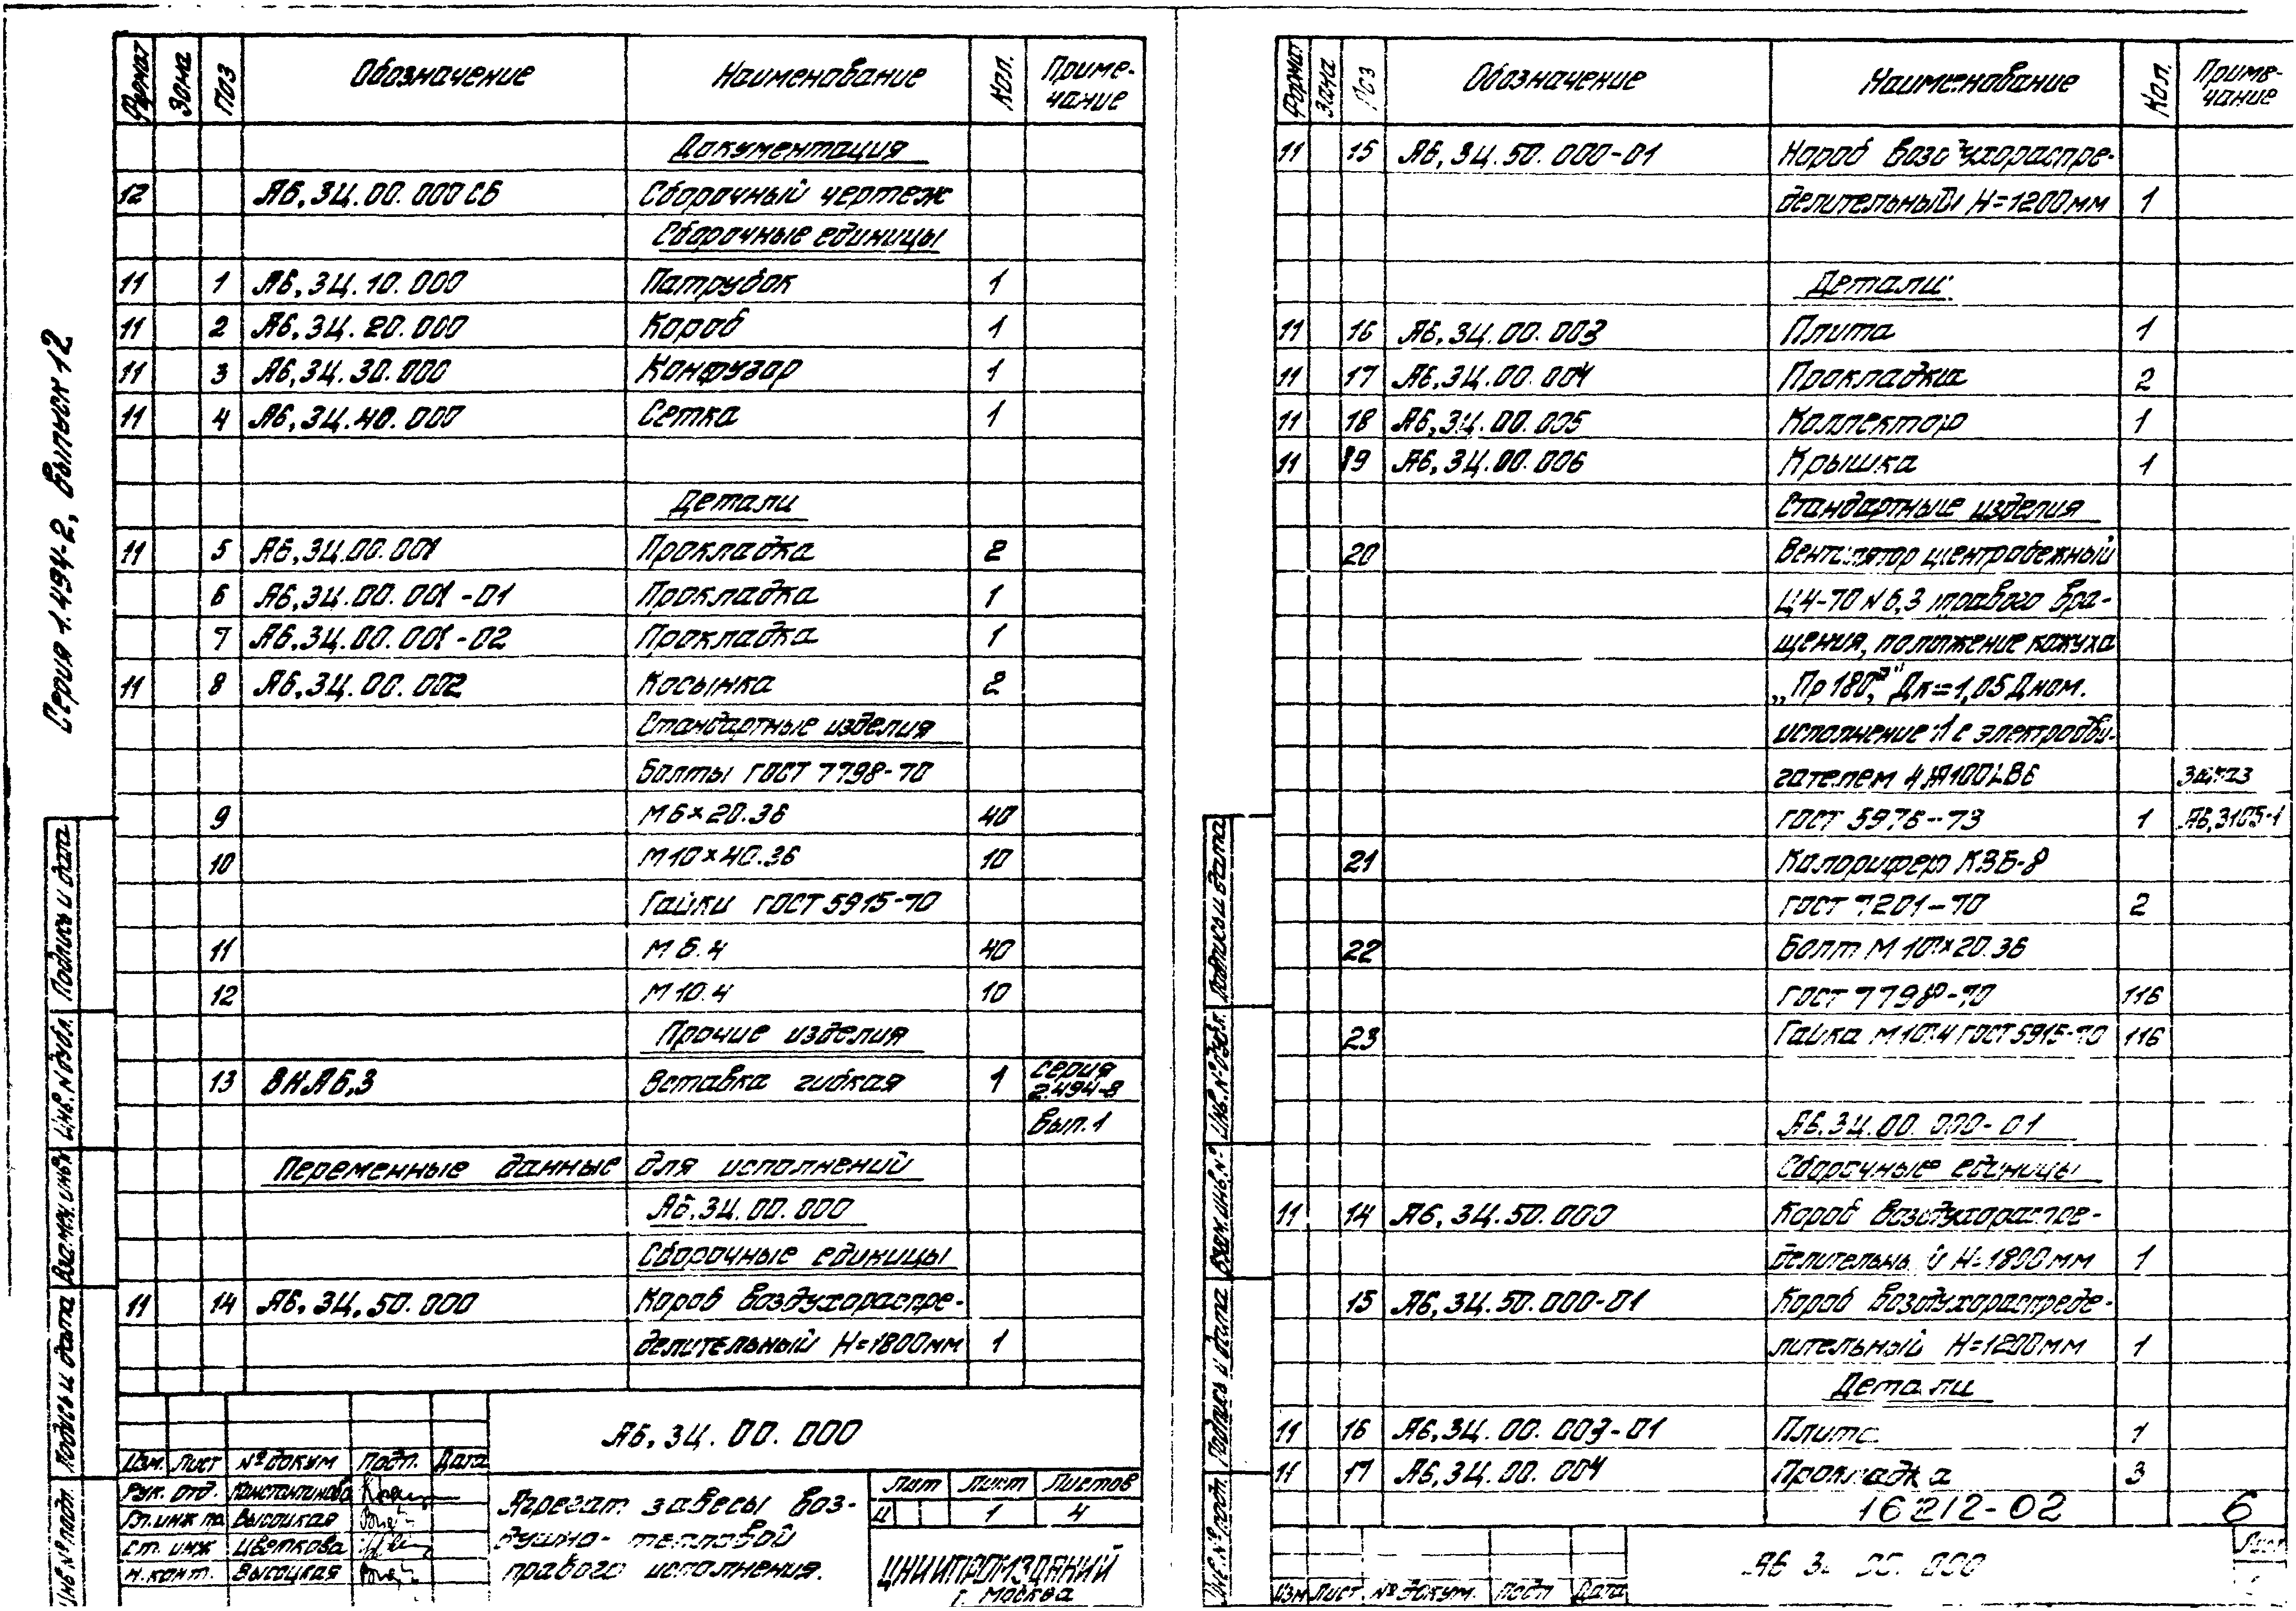 Формат Зона Поз Обозначение Наименование Кол. Приме-
чание
Документация
12 А6,3Ц.00.000СБ Сборочный чертеж
Сборочные единицы
11 1 А6,3Ц.10.000 Патрубок 1
11 2 А6,3Ц.20.000 Короб 1
11 3 А6,3Ц.30.000 Конфузор 1
11 4 А6,3Ц.40.000 Сетка 1
Детали
11 5 А6,3Ц.00.001 Прокладка 2
6 А6,3Ц.00.001-01 Прокладка 1
7 А6,3Ц.00.001-02 Прокладка 1
11 8 А6,3Ц.00.002 Косынка 2
Стандартные изделия
Болты ГОСТ 7798-70
9 М6×20.36 40
10 М10×40.36 10
Гайки ГОСТ 5915-70
11 М6.4 40
12 М10.4 10
Прочие изделия
13 ВНА6,3 Вставка гибкая 1 Серия
2.494-8
Вып.1
Переменные данные для исполнений
А6,3Ц.00.000
Сборочные единицы
11 14 А6,3Ц.50.000 Короб воздухораспре-
делительный Н=1800мм 1
Серия 1.494-2, выпуск 12
Подпись и дата
Инв.№дубл.
Взам. инв.№
Подпись и дата
Инв.№подл.
А6,3Ц.00.000
Изм. Лист №докум Подп. Дата
Рук. отд. Константинова
Гл.инж пр Высоцкая
Ст. инж Цветкова
Н.конт. Высоцкая
Агрегат завесы воз-
душно-тепловой
правого исполнения.
Лит Лист Листов
И 1 4
ЦНИИПРОМЗДАНИЙ
г. Москва
Формат Зона Поз Обозначение Наименование Кол. Приме-
чание
11 15 А6,3Ц.50.000-01 Короб воздухораспре-
делительный Н=1200мм 1
Детали
11 16 А6,3Ц.00.003 Плита 1
11 17 А6,3Ц.00.004 Прокладка 2
11 18 А6,3Ц.00.005 Коллектор 1
11 19 А6,3Ц.00.006 Крышка 1
Стандартные изделия
20 Вентилятор центробежный
Ц4-70 №6,3 правого вра-
щения, положение кожуха
„Пр180°," Дк=1,05Дном.
исполнение 1 с электродви-
гателем 4А100LВ6 заказ
ГОСТ 5976-73 1 А6,3105-1
21 Калорифер КВБ-8
ГОСТ 7201-70 2
22 Болт М10×20.36
ГОСТ 7798-70 116
23 Гайка М10.4 ГОСТ 5915-70 116
А6,3Ц.00.000-01
Сборочные единицы
11 14 А6,3Ц.50.000 Короб воздухораспре-
делительный Н=1800мм 1
15 А6,3Ц.50.000-01 Короб воздухораспреде-
лительный Н=1200мм 1
Детали
11 16 А6,3Ц.00.003-01 Плита 1
11 17 А6,3Ц.00.004 Прокладка 3
16212-02 6
Подпись и дата
Инв.№дубл.
Взам.инв.№
Подпись и дата
Инв.№подл.
Изм Лист №докум. Подп Дата
А6 3 00.000
Лист